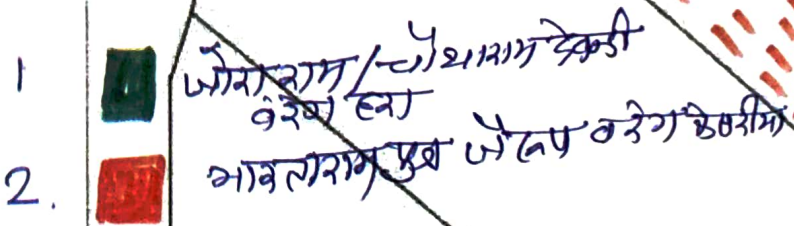 1 जोराराम/चौथाराम देकडी
वरंग हरा
2. भावताराम पुत्र जैरूप वरेग केसरीया